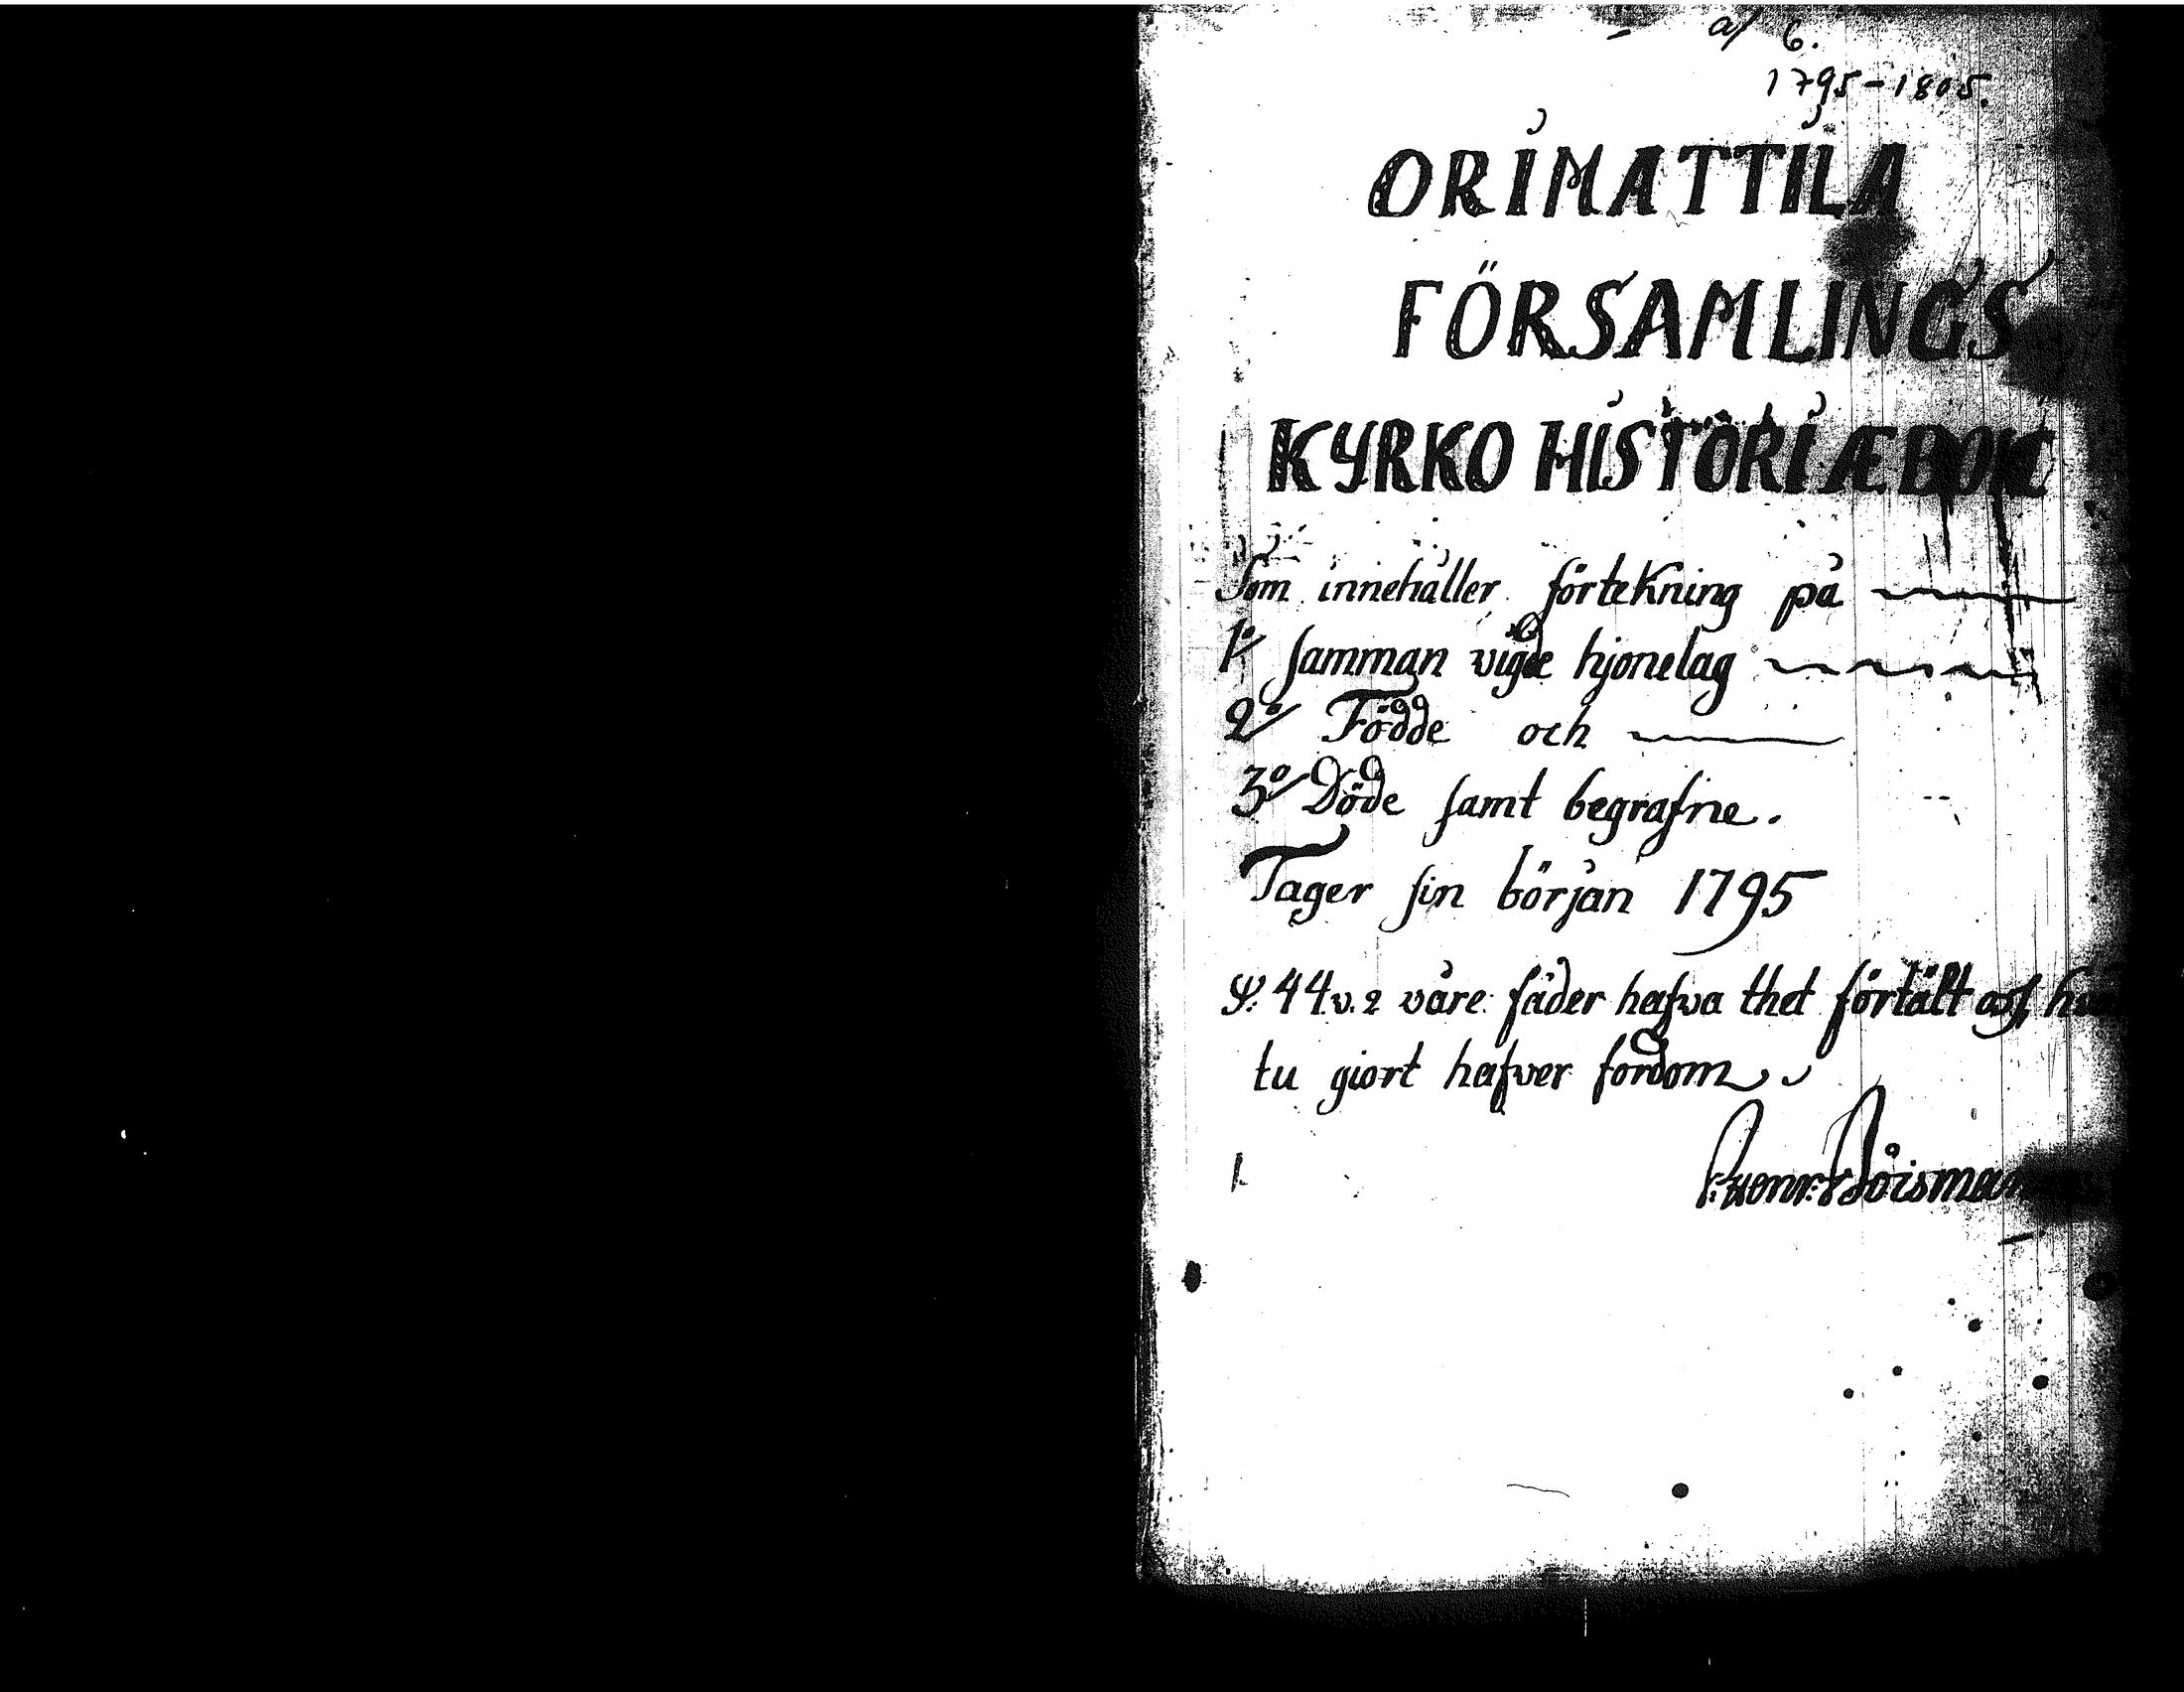 a/ 6.
1795-1805.
ORIMATTILA
FÖRSAMLINGS
KYRKO HISTORIÆBOK
Som innehåller förtekning på
1º/ samman vigde hjonelag
2º/ Födde och
3º/ Döde samt begrafne.
Tager sin början 1795
Ψ. 44 v. 2 våre fäder hafva thet förtält oss,
tu giort hafver fordom
1.